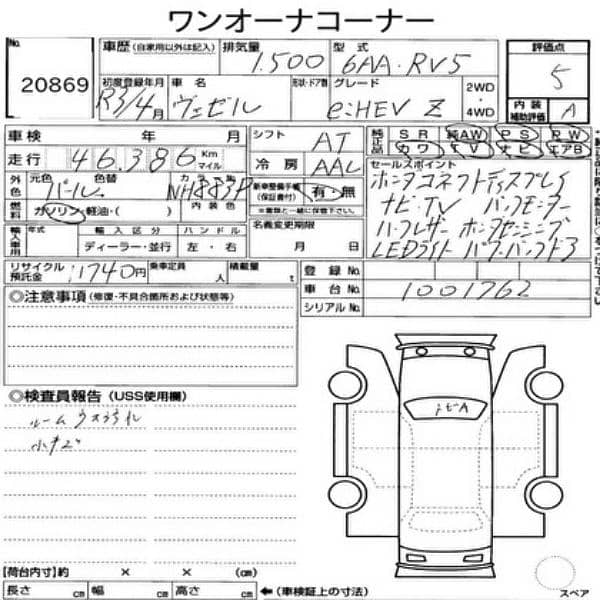 ワンオーナーコーナー
No. 20869
車歴 (自家用以外は記入) 排気量 1.500 型式 6AA・RV5
評価点 5
初度登録年月 R3/4月 車名 ヴェゼル 形状・ドア数 グレード e:HEV Z 2WD・4WD
内装補助評価 A
車検 年 月 シフト AT 純正品 SR 純AW PS PW
カワ TV ナビ エアB
走行 46.386 Km マイル 冷房 AAC セールスポイント
外色 元色 パール 色替 カラーNo. NH883P 新車整備手帳(保証書付) 有・無
※書類と一緒に保管下さい。
燃料 ガソリン・軽油・( ) 内装色
ホンダコネクトディスプレイ
ナビ・TV バックモニター
ハーフレザー ホンダセンシング
LEDライト パワーバックドア
輸入車用 年式 輸入区分 ハンドル
ディーラー・並行 左・右
名義変更期限
月 日
リサイクル預託金 11740円 乗車定員 人 積載量 t
登録No.
車台No. 1001762
シリアルNo.
◎注意事項 (修復・不具合箇所および状態等)
◎検査員報告 (USS使用欄)
ルーム ウスヨゴレ
小キズ
トビA
【荷台内寸】約 × × (cm)
長さ cm 幅 cm 高さ cm ←(車検証上の寸法)
スペア